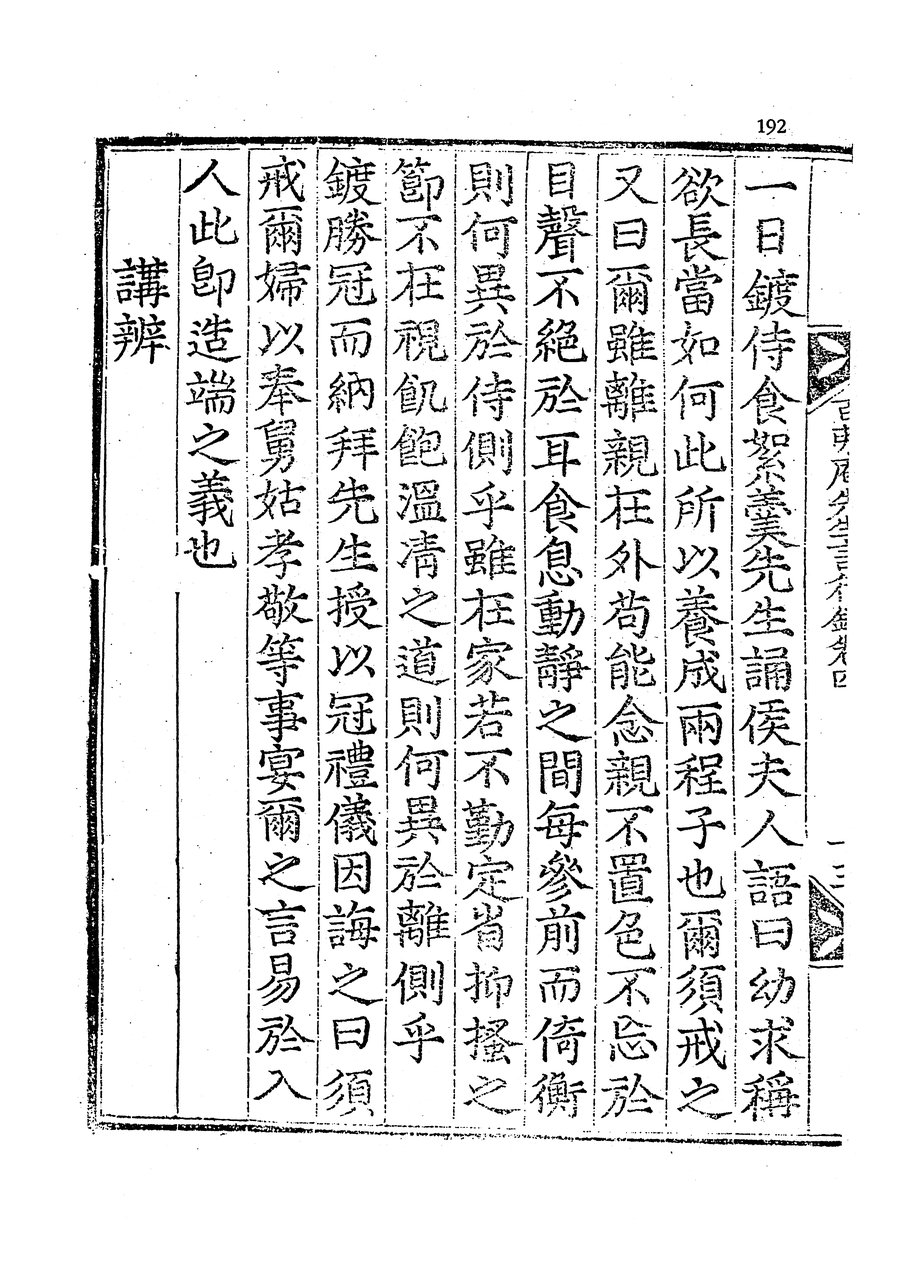 192
一日鍍侍食絮羹先生誦侯夫人語曰幼求稱
欲長當如何此所以養成兩程子也爾須戒之
又曰爾雖離親在外苟能念親不置色不忘於
目聲不絕於耳食息動靜之間每參前而倚衡
則何異於侍側乎雖在家若不勤定省抑搔之
節不在視飢飽溫凊之道則何異於離側乎
鍍勝冠而納拜先生授以冠禮儀因誨之曰須
戒爾婦以奉舅姑孝敬等事宴爾之言易於入
人此卽造端之義也
講辨